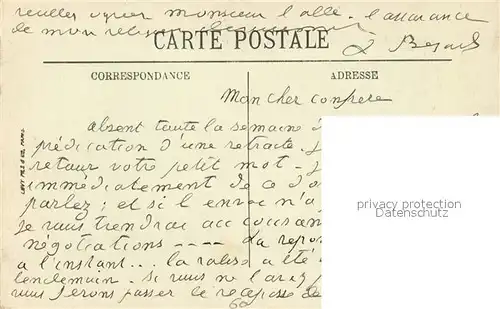 veuillez agréer monsieur l'abbé. l'assurance
de mon
CARTE POSTALE
CORRESPONDANCE
ADRESSE
Mon cher confrere
absent toute la semaine
prédication d'une retraite.
retour votre petit mot -
immédiatement de ce
parlez; et si l'envoi n'a
je vous tiendrai au courant
négociations ---- La
a l'instant... la valise a été
lendemain. Si vous ne l'avez
vous ferons passer le
LEVY FILS & CIE, PARIS
privacy protection
Datenschutz
60